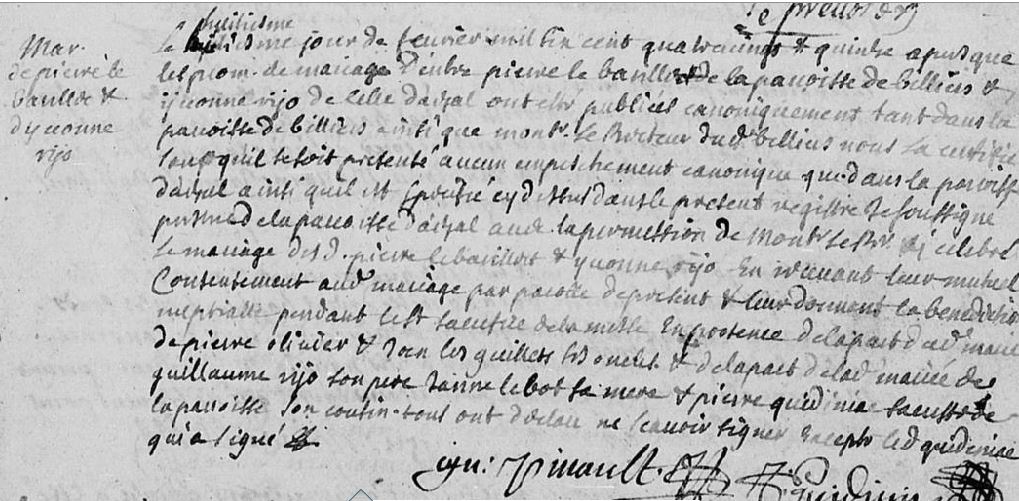 huitiesme
Mar.
de pierre le
bailler &
d'yvonne
rijo
le jour de fevrier mil six cent quatre vingts & quinze apres que
les prom. de mariage d'entre pierre le de la paroisse de billiers &
yvonne rijo de celle d'arzal ont esté publiées canoniquement tant dans la
paroisse de billiers ainsi que monsr. le Recteur dud. billiers nous la certifié
sans qu'il se soit presenté aucun empeschement canonique que dans la paroisse
d'arzal ainsi qu'il est specifié cy dessus dans le present registre Je soussigné
de la paroisse d'arzal avec la permission de Monsr. le Rr. ai celebré
le mariage desd. pierre le & yvonne rijo en recevant leur mutuel
Consentement aud. mariage par parolle de present & leur donnant la benediction
nuptialle pendant le st. sacrifice de la messe En presence de la part dud. marié
de pierre olivier & Jan les ses oncles. & de la part de lad. mariée de
guillaume rijo son pere Janne le bot sa mere & pierre de
la paroisse son cousin. tous ont declaré ne sçavoir signer Excepté led.
qui a signé